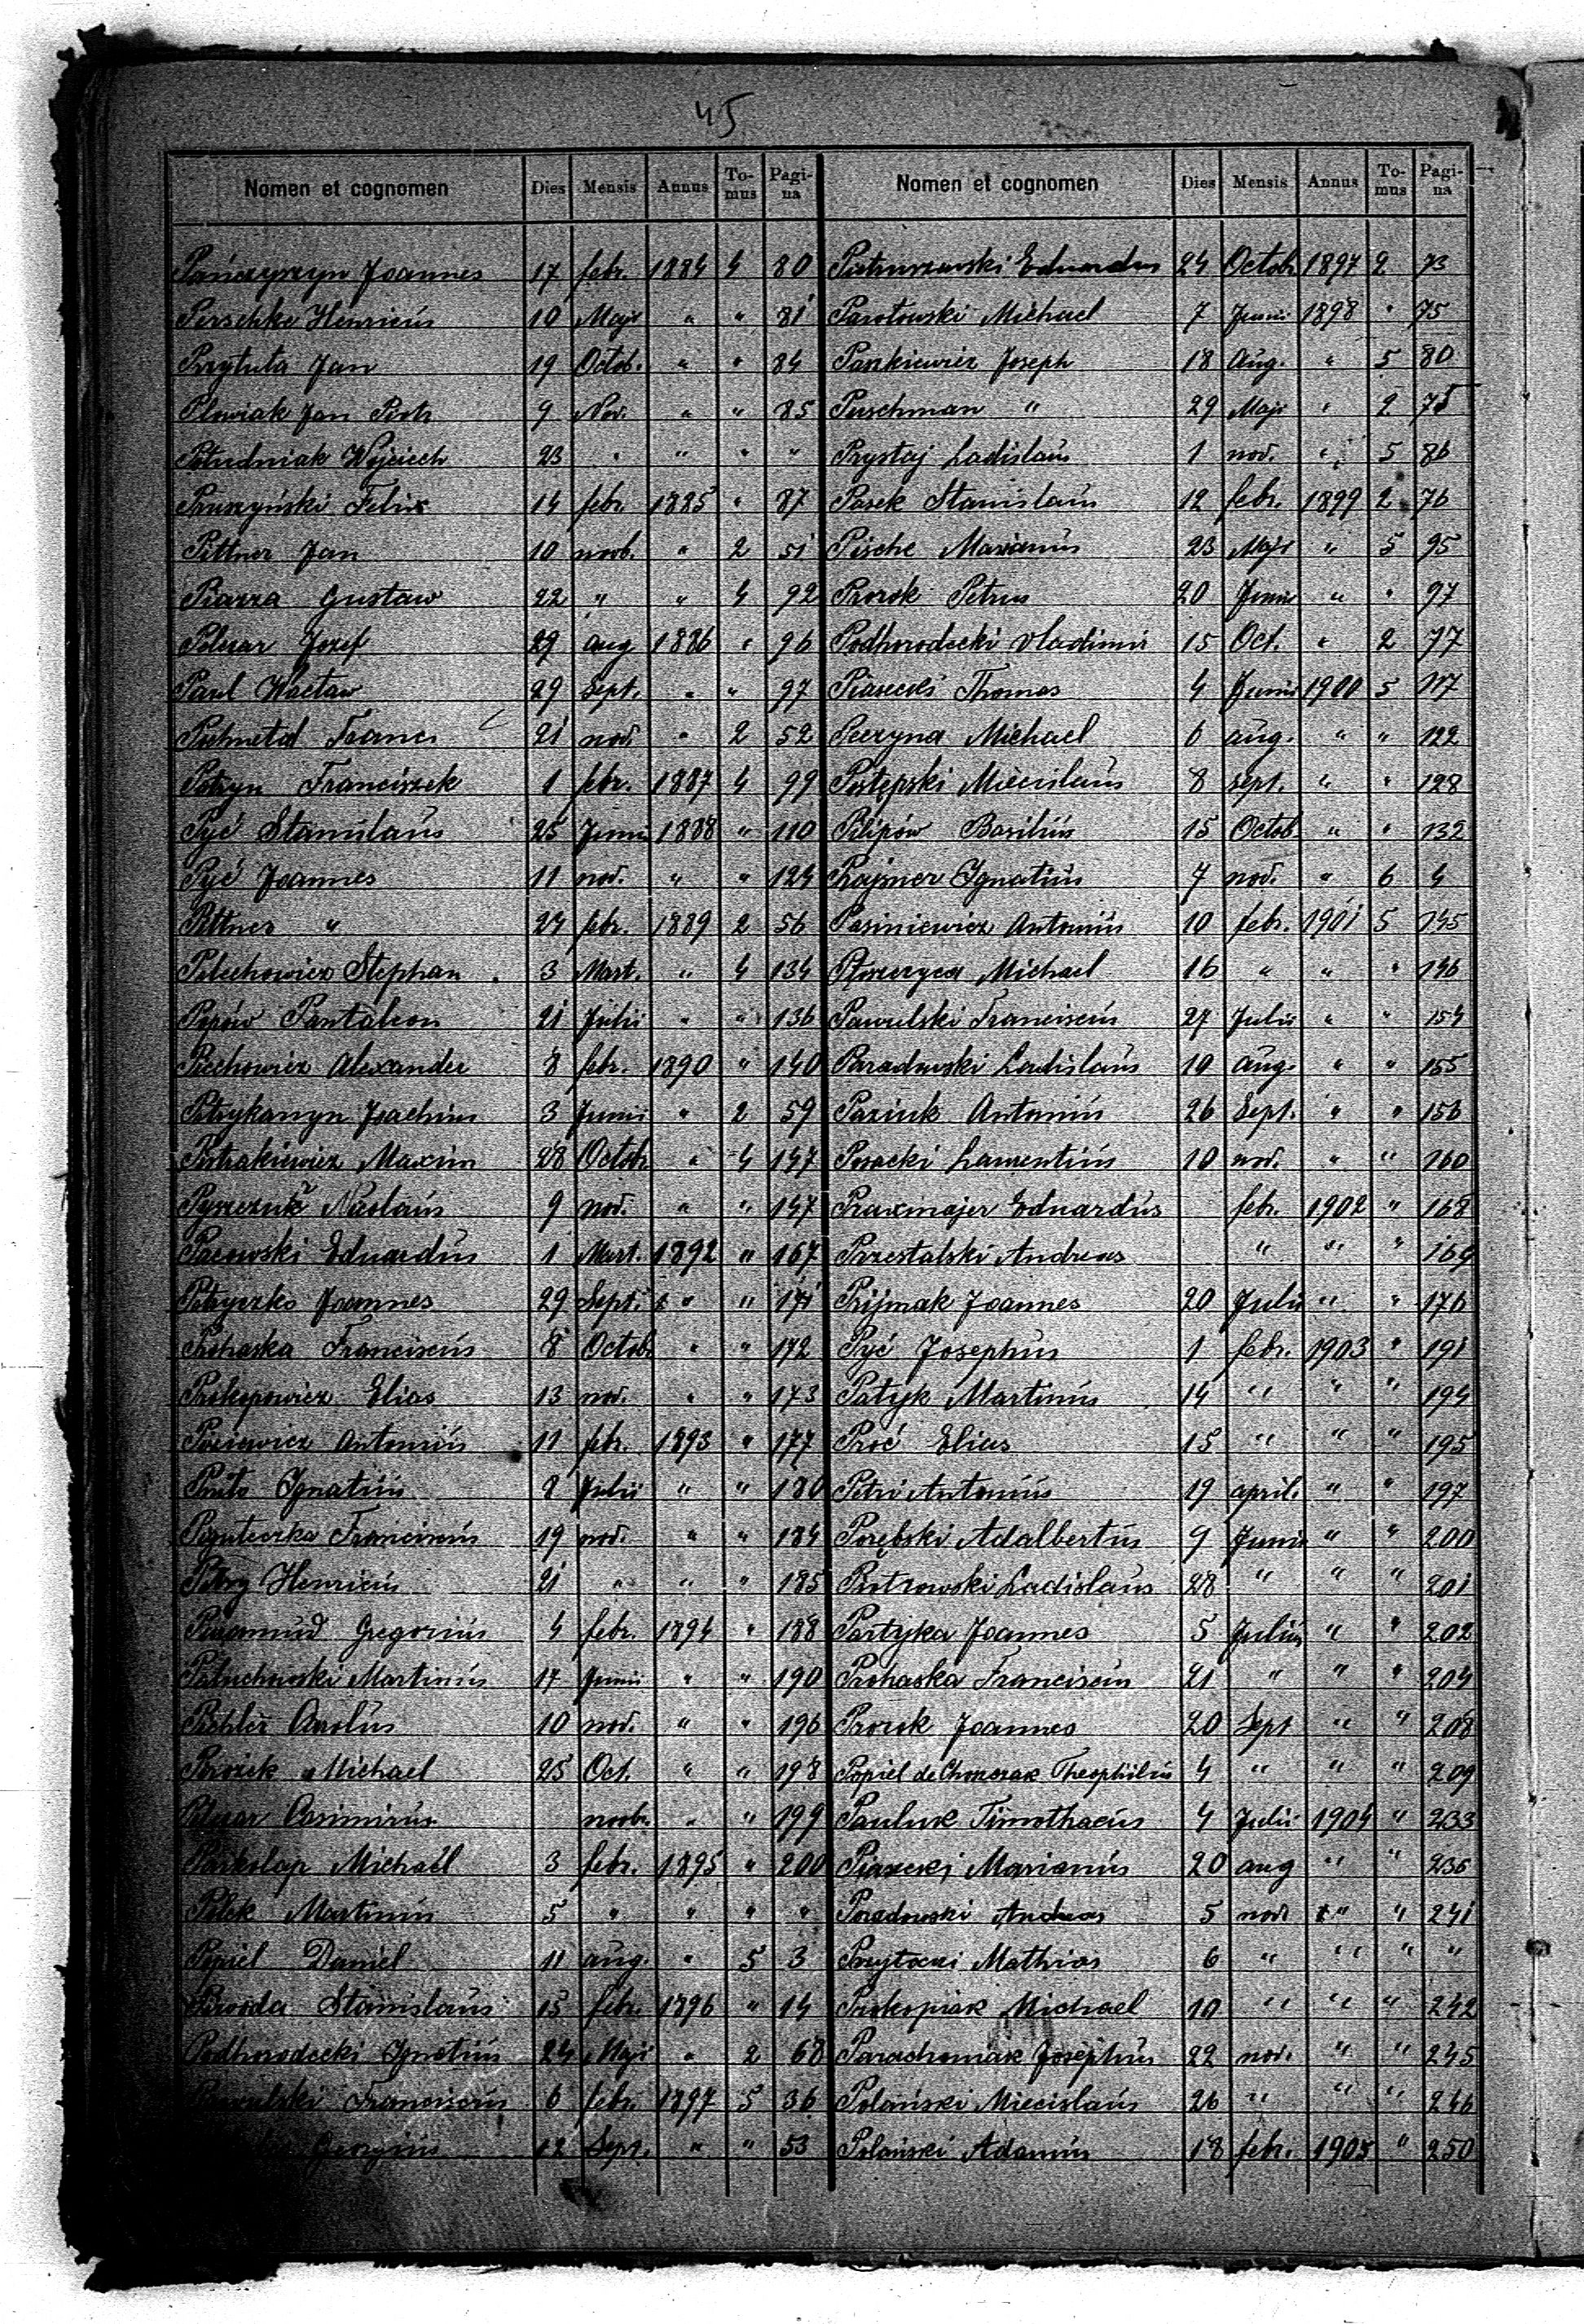 45
Nomen et cognomen Dies Mensis Annus To-mus Pagi-na Nomen et cognomen Dies Mensis Annus To-mus Pagi-na
Pańczyszyn Joannes 17 febr. 1884 4 80 Eduardus 24 Octob 1897 2 73
Perschke Henricus 10 Maji " " 81 Parotowski Michael 7 Junii 1898 " 75
Przytuła Jan 19 Octob. " " 84 Paszkiewicz Joseph 18 Aug. " 5 80
Plowiak Jan Piotr 9 Nov. " " 85 Puschman " 29 Maji " 2 75
Południak Wojciech 23 " " " " Prystaj Ladislaus 1 nov. " 5 86
Pruszyński Felix 14 febr. 1885 " 87 Pasek Stanislaus 12 febr. 1899 2 76
Pittner Jan 10 novb. " 2 51 Pische Marianus 23 Maji " 5 95
Piazza Gustaw 22 " " 4 92 Prorok Petrus 20 Junii " " 97
Pelczar Jozef 29 aug 1886 " 96 Podhorodecki Vladimir 15 Oct. " 2 77
Paul Wacław 29 Sept. " " 97 Piasecki Thomas 4 Junii 1900 5 117
Franc 21 nov. " 2 52 Peczyna Michael 6 aug. " " 122
Petryn Franciszek 1 febr. 1887 4 99 Postępski Miecislaus 8 sept. " " 128
Pyć Stanislaus 25 Junii 1888 " 110 Pilipów Basilius 15 Octob " " 132
Pyć Joannes 11 nov. " " 124 Prajzner Ignatius 7 nov. " 6 4
Pittner " 24 febr. 1889 2 56 Pasiniewicz Antonius 10 febr. 1901 5 145
Pelechowicz Stephan 3 Mart. " 4 134 Płoszczyca Michael 16 " " " 146
Popów Pantaleon 21 Julii " " 136 Pawulski Franciscus 27 Julii " " 154
Piechowicz Alexander 8 febr. 1890 " 140 Paradowski Ladislaus 10 aug. " " 155
Petrykanyn Joachim 3 Junii " 2 59 Paziuk Antonius 26 Sept. " " 156
Pietrakiewicz Maxim 28 Octob " 4 147 Posacki Laurentius 10 nov. " " 160
Pyszczuk Nicolaus 9 nov. " " 147 Praxmajer Eduardus febr. 1902 " 168
Pacowski Eduardus 1 Mart. 1892 " 167 Przestalski Andreas " " " 169
Petryczko Joannes 29 Sept. " " 171 Prijmak Joannes 20 Julii " " 176
Prohaska Franciscus 8 Octob " " 172 Pyć Josephus 1 febr. 1903 " 191
Prokopowicz Elias 13 nov. " " 173 Patyk Martinus 14 " " " 194
Antonius 11 febr. 1893 " 177 Proć Elias 15 " " " 195
Ignatius 8 Julii " " 180 Petri Antonius 19 april. " " 197
Franciscus 19 nov. " " 184 Porębski Adalbertus 9 Junii " " 200
Petry Henricus 21 " " " 185 Piotrowski Ladislaus 28 " " " 201
Gregorius 4 febr. 1894 " 188 Partyka Joannes 5 Julii " " 202
Paluchowski Martinus 17 Junii " " 190 Prohaska Franciscus 21 " " " 204
Pichler Carolus 10 nov. " " 196 Prorok Joannes 20 Sept " " 208
Michael 25 Oct. " " 198 Popiel de Theophilus 4 " " " 209
Casimirus novb. " " 199 Pauluk Timothaeus 4 Julii 1904 " 233
Parkolap Michaël 3 febr. 1895 " 200 Piasecki Marianus 20 aug " " 235
Polek Martinus 5 " " " " Poradowski Andreas 5 nov. " " 241
Popiel Daniel 11 aug. " 5 3 Przytocki Mathias 6 " " " "
Stanislaus 15 febr. 1896 " 14 Prokopiak Michael 10 " " " 242
Podhorodecki Ignatius 24 Maji " 2 68 Parachoniak Josephus 22 nov. " " 245
Franciscus 6 febr. 1897 5 36 Polański Miecislaus 26 " " " 246
Georgius 12 Sept. " " 53 Polański Adamus 18 febr. 1905 " 250